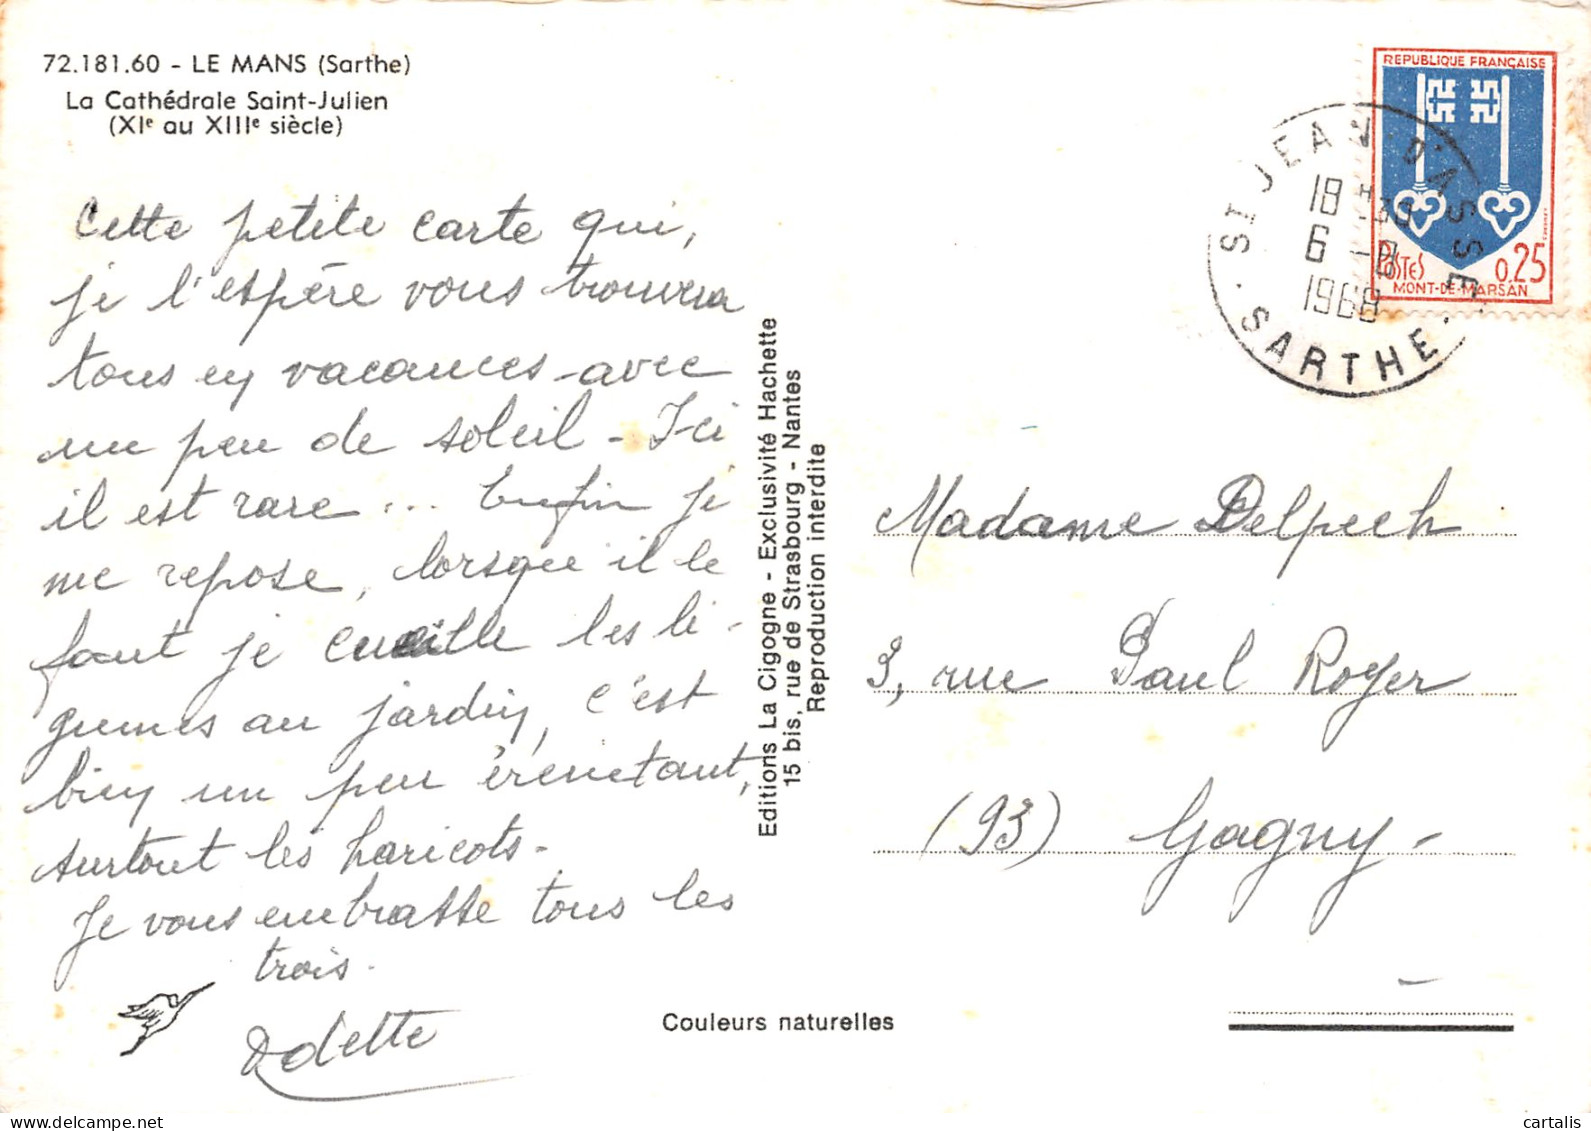 72.181.60 - LE MANS (Sarthe)
La Cathédrale Saint-Julien
(XIe au XIIIe siècle)
Cette petite carte qui,
je l'espère vous trouvera
tous en vacances - avec
un peu de soleil - Ici
il est rare ... Enfin je
me repose, lorsque il le
faut je cueille les lé-
gumes au jardin, c'est
bien un peu éreintant,
surtout les haricots -
Je vous embrasse tous les
trois.
Odette
Editions La Cigogne - Exclusivité Hachette
15 bis, rue de Strasbourg - Nantes
Reproduction interdite
Couleurs naturelles
REPUBLIQUE FRANÇAISE
POSTES 0,25
MONT-DE-MARSAN
ST JEAN-D'ASSE
18 H 30
6 - 8
1968
SARTHE
Madame Delpech
3, rue Paul Royer
(93) Gagny -
cartalis